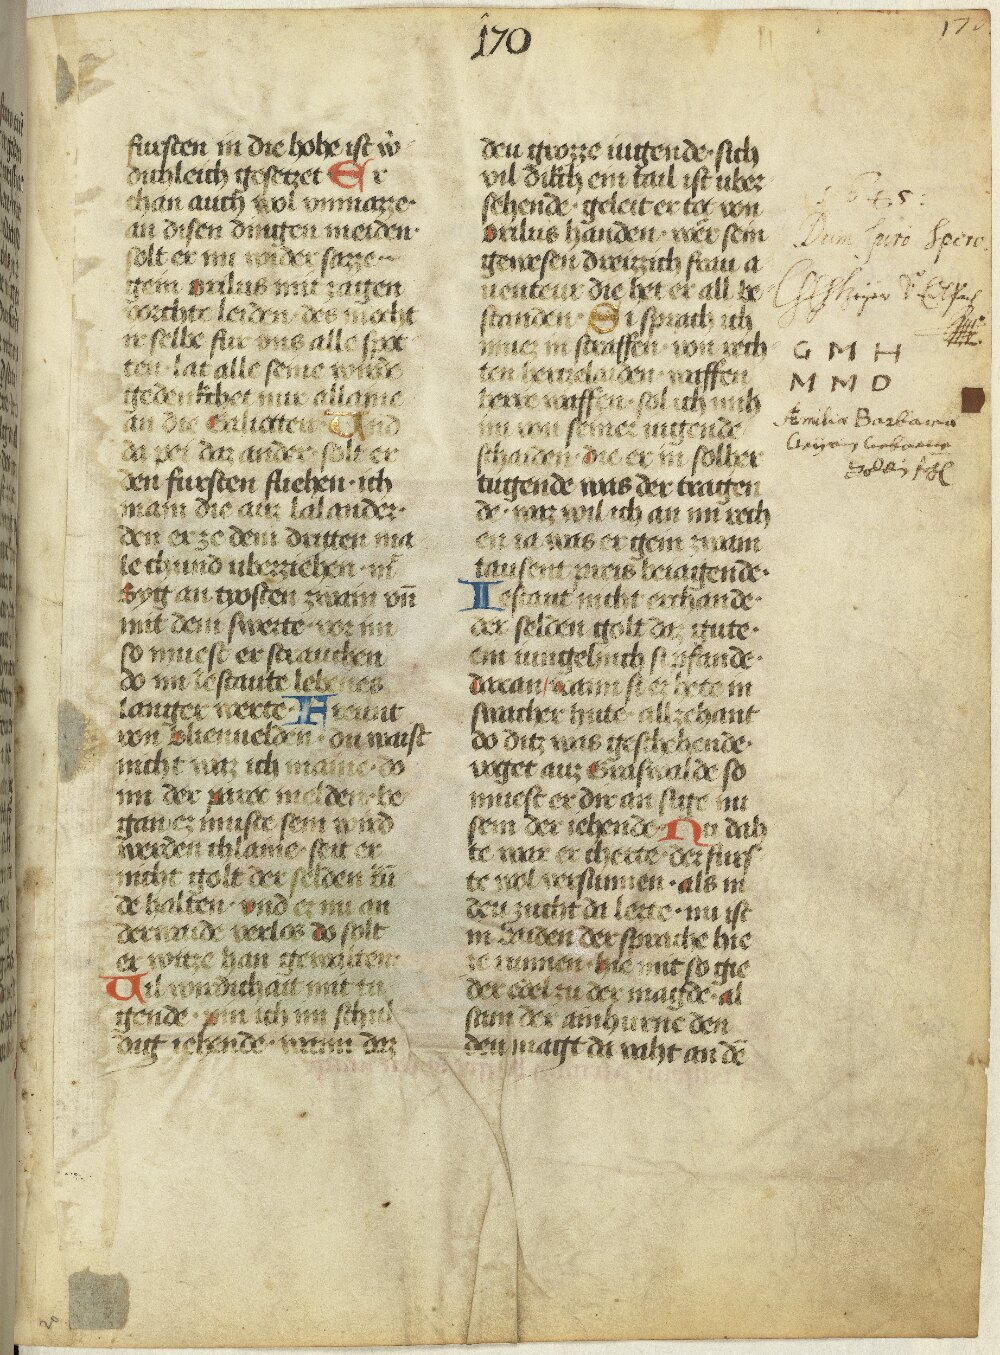 170
fursten in die hohe ist w
dichleich gesetzet Er
chan auch wol vnmazze·
an disen dingen meiden·
solt er im wider sazze
gein orilus mit zagen
vorchte leiden· des mocht
ir selbe fur vns alle spot
ten· lat alle seine
gedenkhet nur allaine
an die Salioten· Und
da pei daz ander solt er
den fursten fliehen· ich
main die auz lalander·
den er ze dem dritten ma
le chund uberziehen·
an trosten zwain vn
mit dem swerte· vor im
so muest er strauchen
do im lestaute lebenes
langer werte· Freunt
von Blienuelden· du waist
nicht waz ich maine· do
im der melden· be
gan ez muste sein wird
werden chlaine· seit er
nicht golt der selden
de halten· vnd ez im an
derwaide verlos do solt
er witze han gewalten·
Uil wirdichait mit tu
gende· ich im schul
dig iehende· wann daz
den grozze iugende· sich
vil dikch ein tail ist uber
sehende· geleit er tot von
orilus handen· wer sein
gewesen dreizzich frau a
uenteur die het er all be
standen· Si sprach ich
muez in straffen· von rech
ten hertzelaiden· waffen
herre waffen· sol ich mich
nu von seiner iugende
schaiden· die er in solher
tugende was der tragen
de· waz wil ich an im rech
en ia was er gein zwain
tausent preis beiagende·
Lestaut nicht erchande·
der selden golt daz gute·
ein iungelinch si pfande·
daran wann si ez hete in
swacher hute· allzehant
do ditz was geschehende·
voget auz Graswalde so
muest er dir an sige nu
sein der iehende· Nu dah
te waz er cherte· der furs
te wol versunnen· als in
den zucht da lerte· nu ist
in baiden der sprache hie
ze runnen· hie mit so gie
der edel zu der magde· al
sam der ainhurne den
den magt da vaht an de
170
Dum Spiro Spero
G M H
M M D
Æmilia Barbara